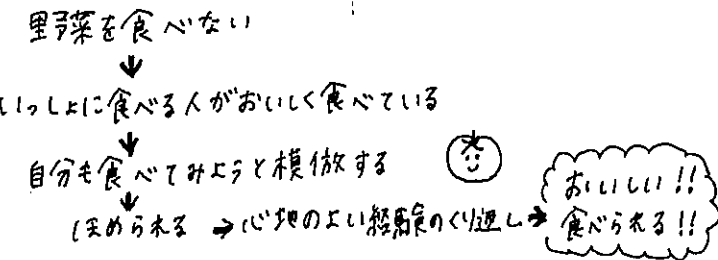 野菜を食べない
↓
いっしょに食べる人がおいしく食べている
↓
自分も食べてみようと模倣する
↓
ほめられる → 心地のよい経験のくり返し →
おいしい!!
食べられる!!